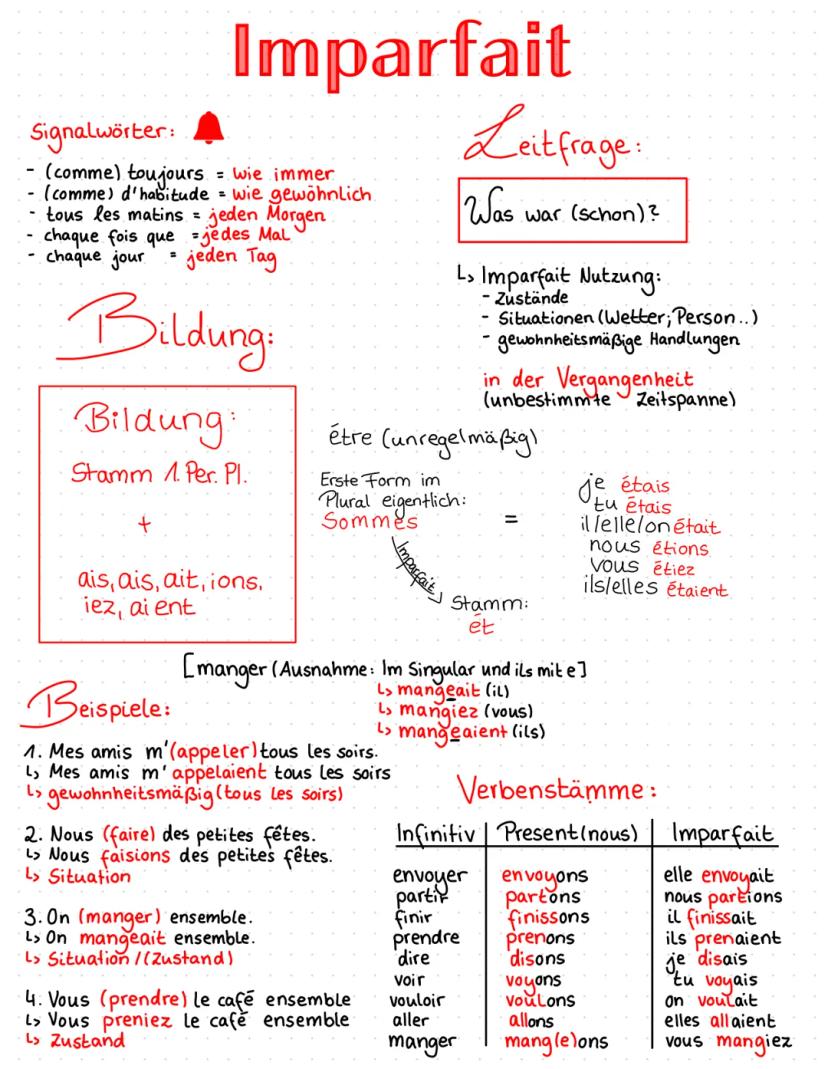 Imparfait
Signalwörter:
- (comme) toujours = wie immer
- (comme) d'habitude = wie gewöhnlich
- tous les matins = jeden Morgen
- chaque fois que = jedes Mal
- chaque jour = jeden Tag
Leitfrage:
Was war (schon)?
↳ Imparfait Nutzung:
- Zustände
- Situationen (Wetter; Person..)
- gewohnheitsmäßige Handlungen
in der Vergangenheit
(unbestimmte Zeitspanne)
Bildung:
Bildung:
Stamm 1. Per. Pl.
+
ais, ais, ait, ions,
iez, aient
étre (unregelmäßig)
Erste Form im
Plural eigentlich:
Sommes
Imparfait
Stamm:
ét
=
je étais
tu étais
il/elle/on était
nous étions
vous étiez
ils/elles étaient
[manger (Ausnahme: Im Singular und ils mit e]
↳ mangeait (il)
↳ mangiez (vous)
↳ mangeaient (ils)
Beispiele:
1. Mes amis m'(appeler) tous les soirs.
↳ Mes amis m'appelaient tous les soirs
↳ gewohnheitsmäßig (tous les soirs)
2. Nous (faire) des petites fêtes.
↳ Nous faisions des petites fêtes.
↳ Situation
3. On (manger) ensemble.
↳ On mangeait ensemble.
↳ Situation / (Zustand)
4. Vous (prendre) le café ensemble
↳ Vous preniez le café ensemble
↳ Zustand
Verbenstämme:
Infinitiv Present (nous) Imparfait
envoyer envoyons elle envoyait
partir partons nous partions
finir finissons il finissait
prendre prenons ils prenaient
dire disons je disais
voir voyons tu voyais
vouloir voulons on voulait
aller allons elles allaient
manger mang(e)ons vous mangiez